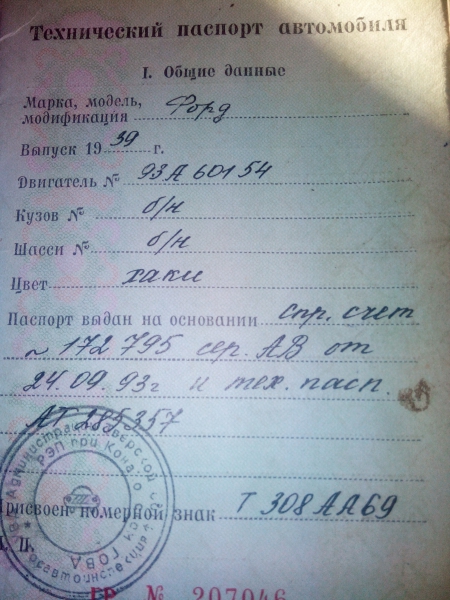 Технический паспорт автомобиля
I. Общие данные
Марка, модель, модификация Форд
Выпуск 19 39 г.
Двигатель № 93А60154
Кузов № б/н
Шасси № б/н
Цвет хаки
Паспорт выдан на основании спр. счет
№ 172795 сер. АВ от
24.09.93г и тех. пасп.
АГ 285357
Присвоен номерной знак Т 308 АА69
М. П.
№ 207046